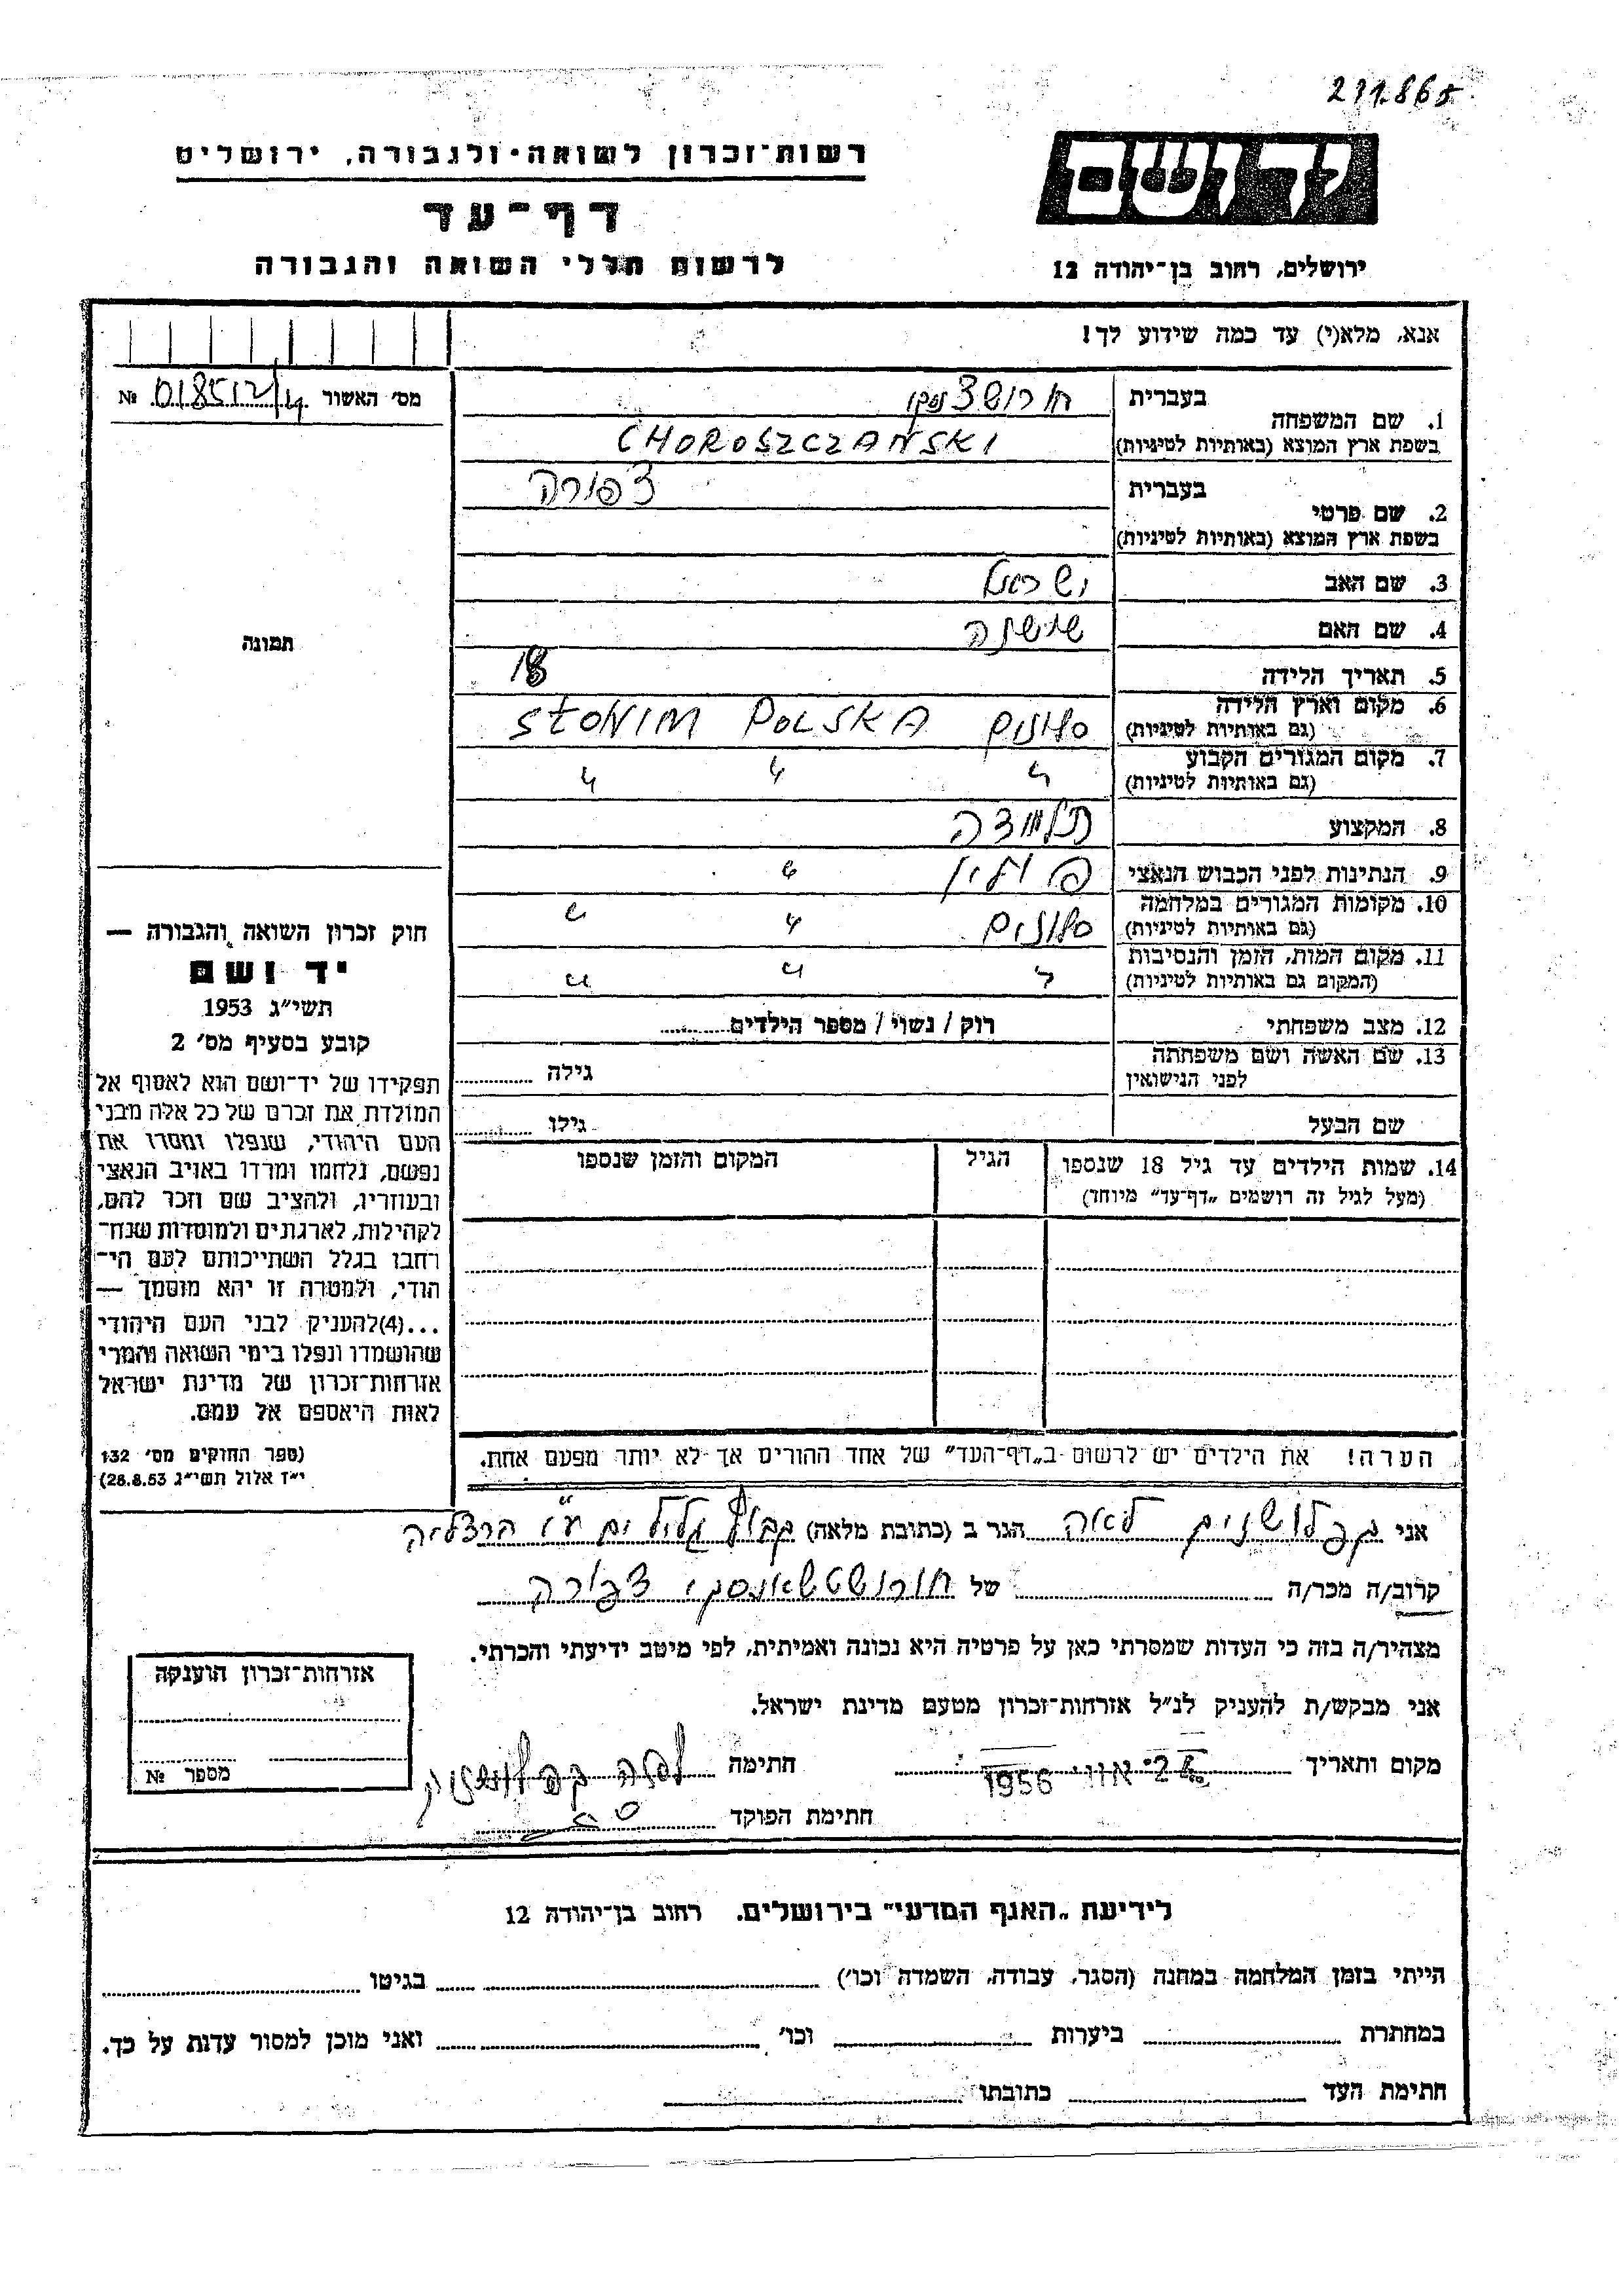 רשות־זכרון לשואה ולגבורה, ירושלים
דף־עד
לרשום חללי השואה והגבורה
יד ושם
ירושלים, רחוב בן־יהודה 12
אנא, מלא(י) עד כמה שידוע לך!
מס׳ האשור № 018512/14
1. שם המשפחה
בעברית
בשפת ארץ המוצא (באותיות לטיניות) CHOROSZCZAŃSKI
2. שם פרטי
בעברית צפורה
בשפת ארץ המוצא (באותיות לטיניות)
3. שם האב ישראל
4. שם האם שושנה
5. תאריך הלידה 18
6. מקום וארץ הלידה (גם באותיות לטיניות) סלונים SŁONIM POLSKA
7. מקום המגורים הקבוע (גם באותיות לטיניות) " " "
8. המקצוע תלמידה
9. הנתינות לפני הכבוש הנאצי פולין "
10. מקומות המגורים במלחמה (גם באותיות לטיניות) סלונים " "
11. מקום המות, הזמן והנסיבות (המקום גם באותיות לטיניות) " " "
12. מצב משפחתי רוק / נשוי / מספר הילדים
13. שם האשה ושם משפחתה לפני הנישואין גילה
שם הבעל גילו
14. שמות הילדים עד גיל 18 שנספו (מעל לגיל זה רושמים „דף־עד” מיוחד)
הגיל
המקום והזמן שנספו
תמונה
חוק זכרון השואה והגבורה —
יד ושם
תשי״ג 1953
קובע בסעיף מס׳ 2
תפקידו של יד־ושם הוא לאסוף אל
המולדת את זכרם של כל אלה מבני
העם היהודי, שנפלו ומסרו את
נפשם, נלחמו ומרדו באויב הנאצי
ובעוזריו, ולהציב שם וזכר להם,
לקהילות, לארגונים ולמוסדות שנח־
רבו בגלל השתייכותם לעם הי־
הודי, ולמטרה זו יהא מוסמך —
...(4)להעניק לבני העם היהודי
שהושמדו ונפלו בימי השואה והמרי
אזרחות־זכרון של מדינת ישראל
לאות היאספם אל עמם.
(ספר החוקים מס׳ 132
י״ז אלול תשי״ג 28.8.53)
הערה! את הילדים יש לרשום ב„דף־העד” של אחד ההורים אך לא יותר מפעם אחת.
אני קפלושניק לאה הגר ב (כתובת מלאה) קבוץ גליל ים ע״י הרצליה
קרוב/ה מכר/ה של חורושטשאנסקי צפורה
מצהיר/ה בזה כי העדות שמסרתי כאן על פרטיה היא נכונה ואמיתית, לפי מיטב ידיעתי והכרתי.
אני מבקש/ת להעניק לנ״ל אזרחות־זכרון מטעם מדינת ישראל.
מקום ותאריך 1956 חתימה לאה קפלושניק
חתימת הפוקד
אזרחות־זכרון הוענקה
מספר №
לידיעת „האגף המדעי” בירושלים. רחוב בן־יהודה 12
הייתי בזמן המלחמה במחנה (הסגר, עבודה, השמדה וכו׳) בגיטו
במחתרת ביערות וכו׳ ואני מוכן למסור עדות על כך.
חתימת העד כתובתו